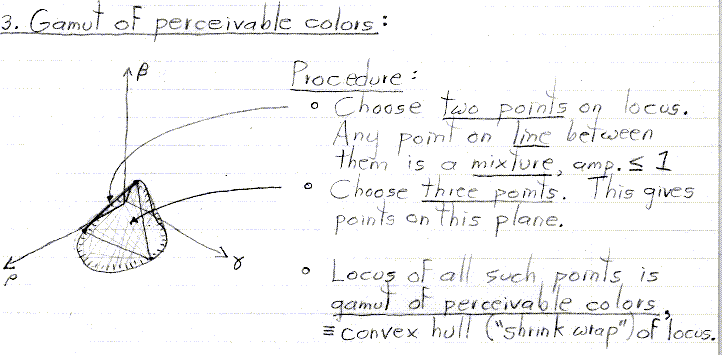 3. Gamut of perceivable colors:
β
Procedure:
• Choose two points on locus.
Any point on line between
them is a mixture, amp. ≤ 1
• Choose three points. This gives
points on this plane.
ρ
γ
• Locus of all such points is
gamut of perceivable colors,
≡ convex hull ("shrink wrap") of locus.